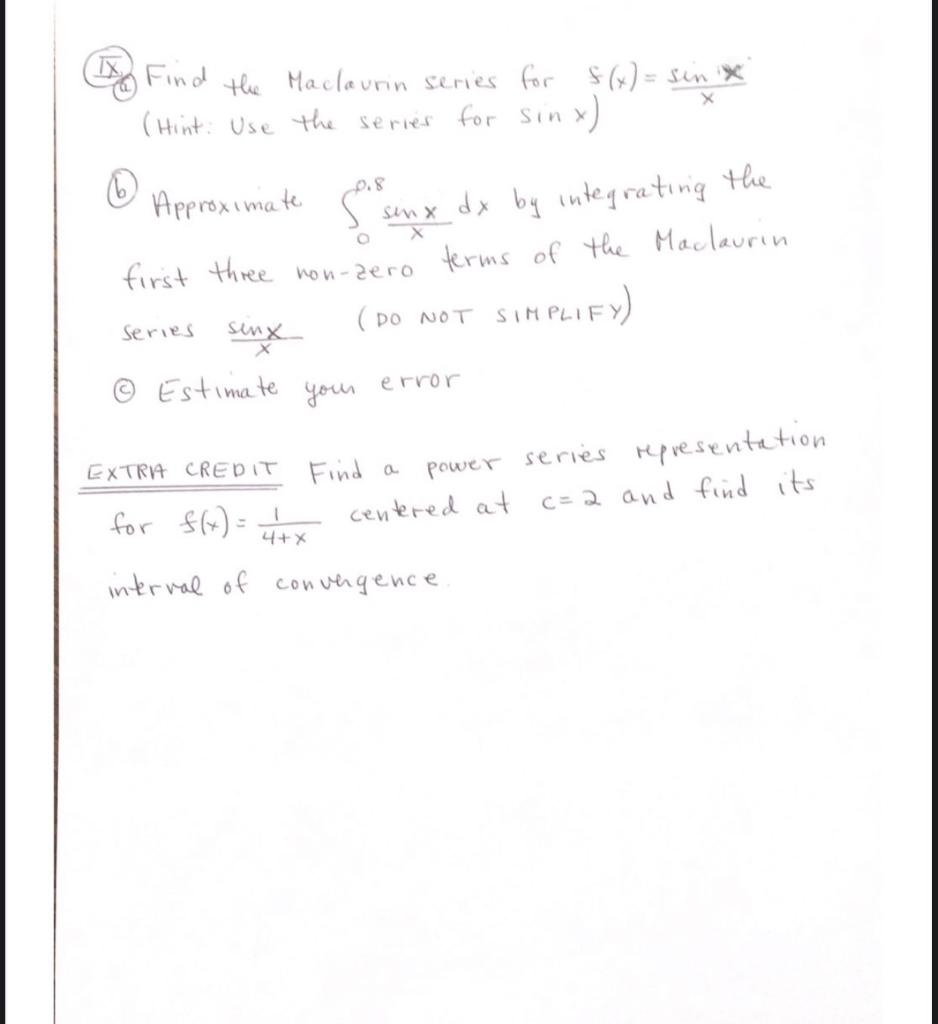 IX a Find the Maclaurin series for f(x) = sin x / x
(Hint: Use the series for sin x)
b Approximate ∫₀^0.8 sin x / x dx by integrating the
first three non-zero terms of the Maclaurin
series sin x / x (DO NOT SIMPLIFY)
c Estimate your error
EXTRA CREDIT Find a power series representation
for f(x) = 1 / 4+x centered at c=2 and find its
interval of convergence.